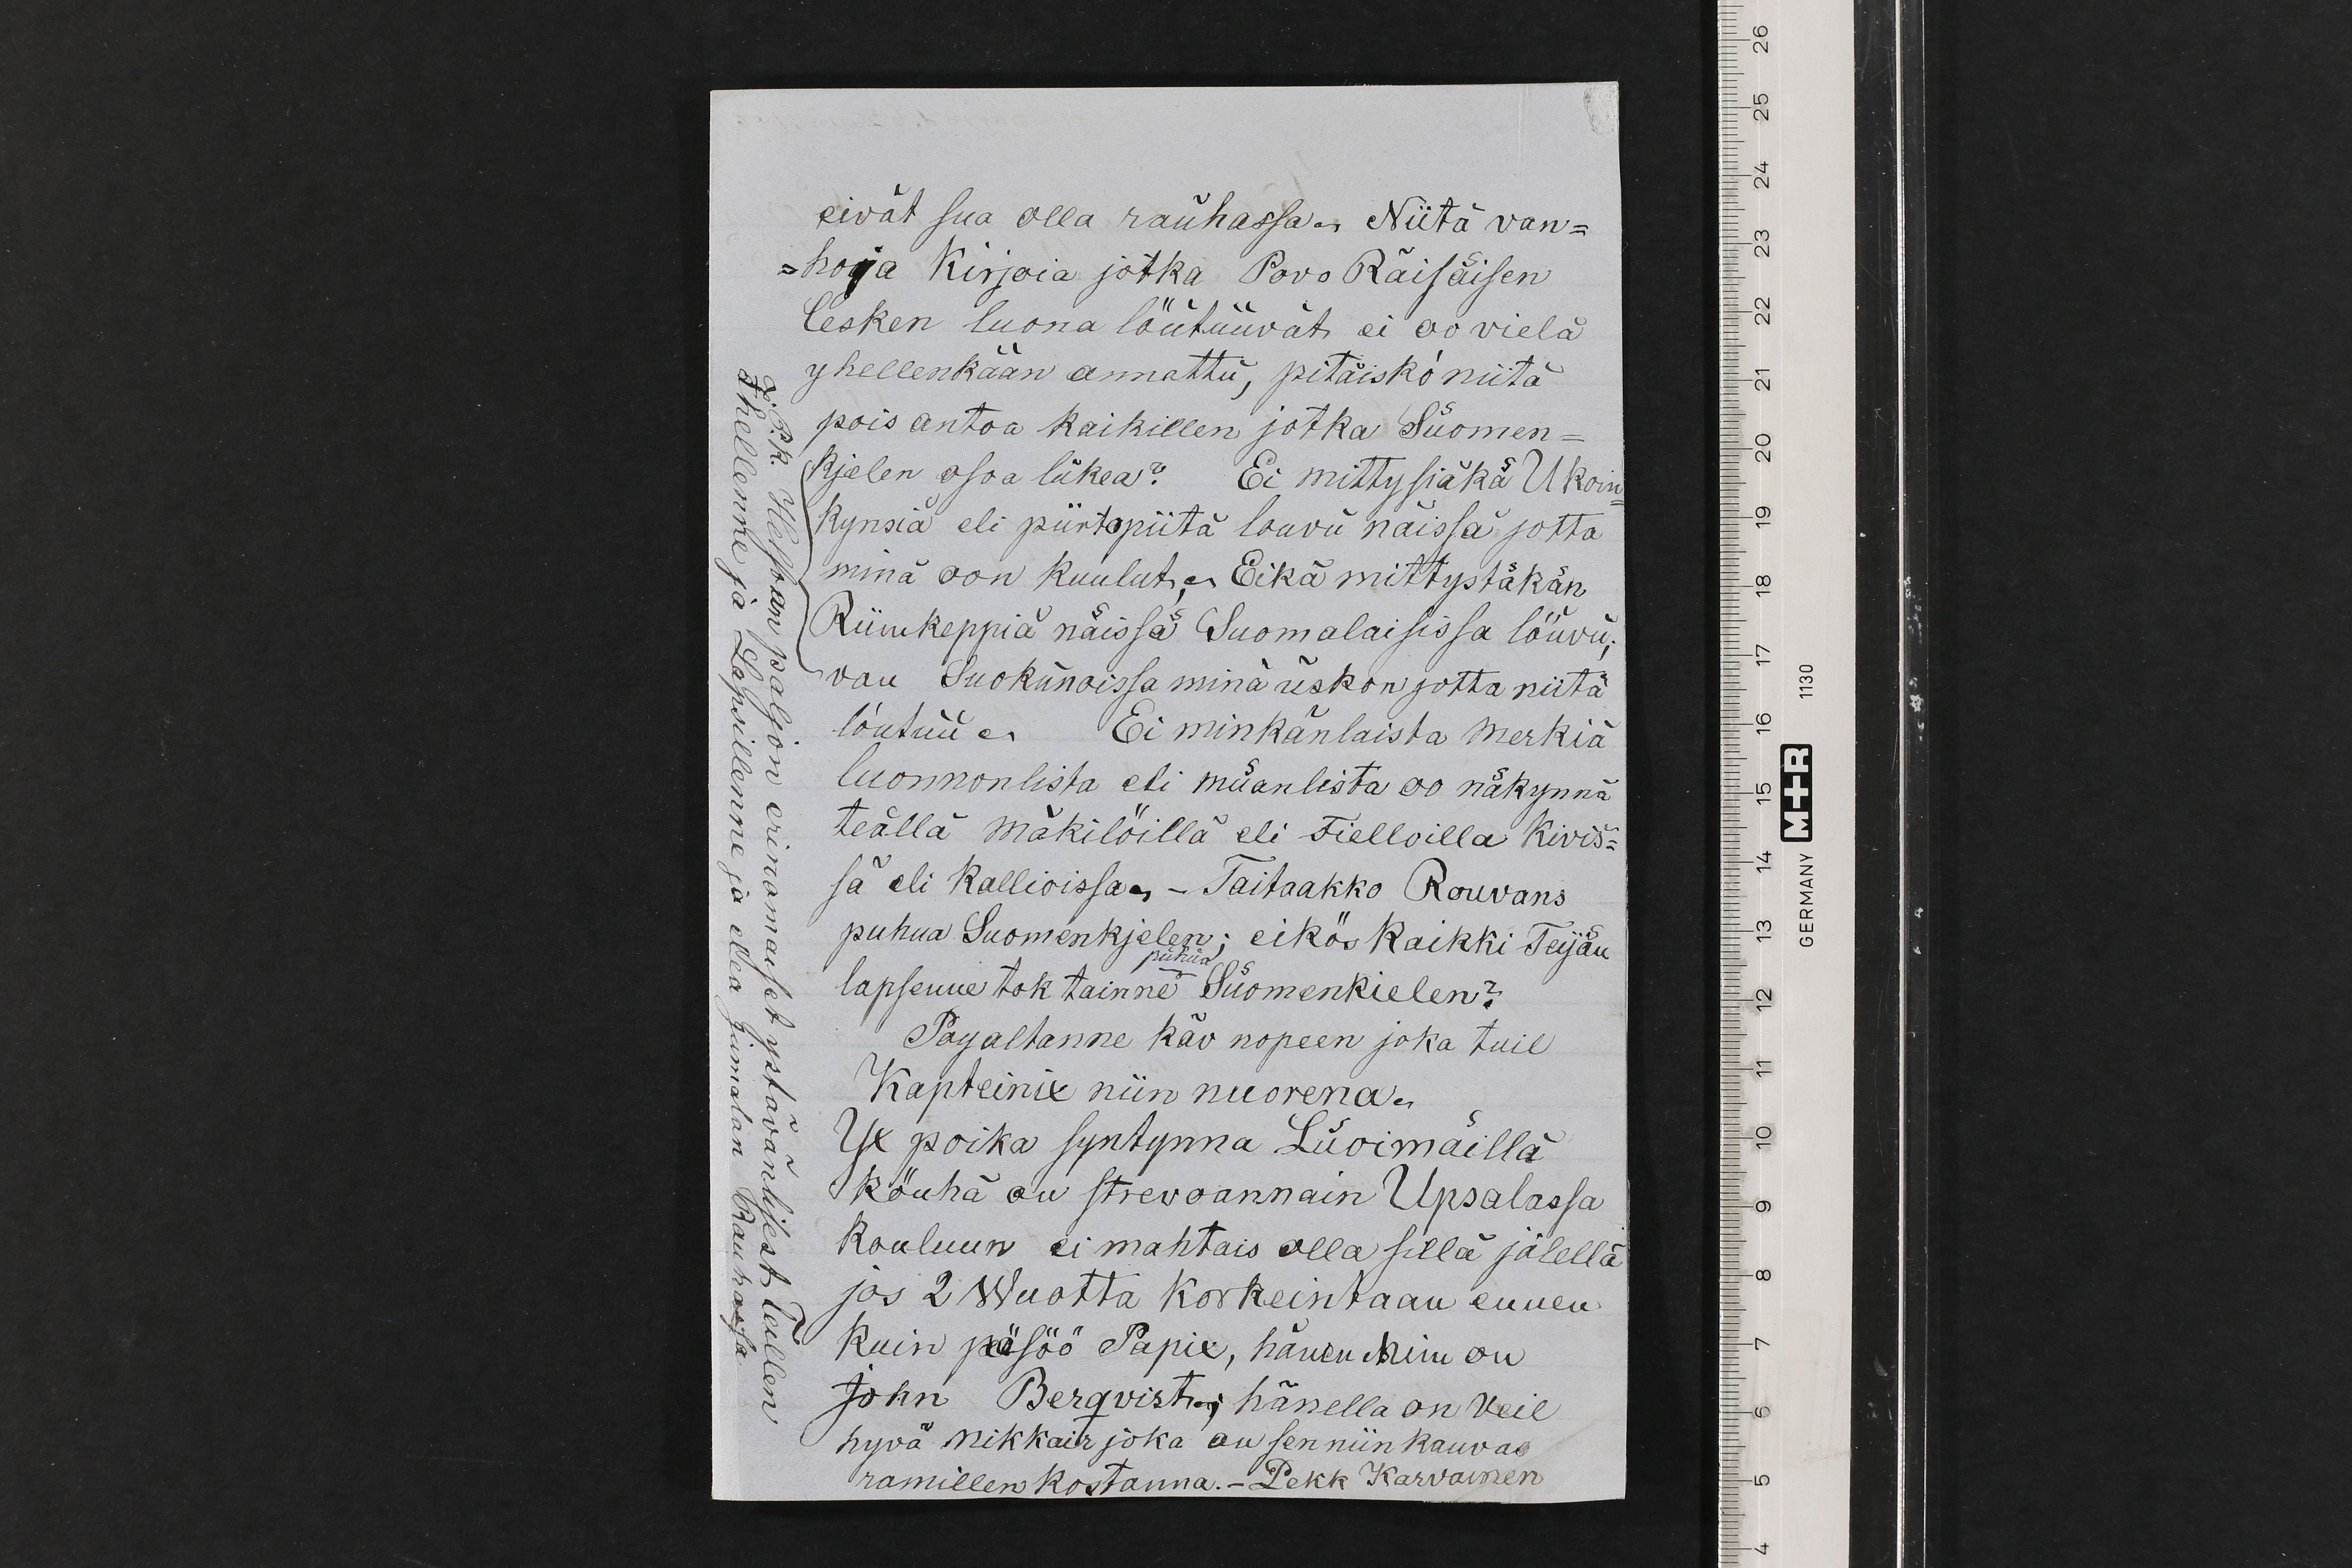 eivät sua olla rauhassa. Niitä van=
=hoja Kirjoia jotka Povo Räisäisen
lesken luona löutüüvät ei oo vielä
yhellenkään annattu, pitäiskö niitä
pois antoa kaikillen jotka Suomen=
kjelen osoa lukea? Ei mittysiäkä Ukoin=
kynsiä eli piirtopiitä louvu näissä jotta
minä oon kuulut, Eikä mittystäkän
Riimkeppiä näissä Suomalaisissa löuvü;
van Suokunoissa minä uskon jotta niitä
löutüü. Ei minkänlaista merkiä
luonnonlista eli müanlista oo näkynnä
teällä mäkilöillä eli Fielloilla Kivis=
sä eli Kallioissa. - Taitaakko Rouvans
puhua Suomenkjelen; eikös Kaikki Teijän
puhua
lapsenne tok tainne Suomenkielen?
Pojaltanne käv nopeen joka tuil
Kapteinix niin nuorena.
Yx poika syntynnä Luoimäillä
köuhä on strevoannain Upsalassa
Kouluun ei mahtais olla sillä jälellä
jos 2 Wuotta korkeintaan ennen
kuin peäsöö Papix, hänen Nim on
John Berqvist; hänellä on Veil
hyvä nikkair joka on sen niin kauvas
ramillen kostanna. - Pekk Karvainen
P.k. paljon erinomaiset ystävänlisest Teillen
Thellenne ja Lapsillenne ja olla Jumalan Rauhassa